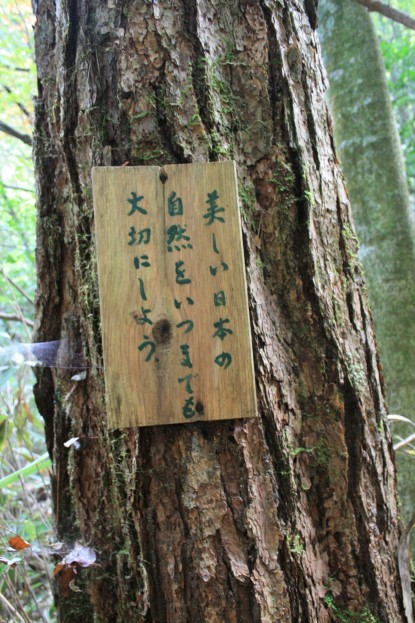 美しい日本の
自然をいつまでも
大切にしよう